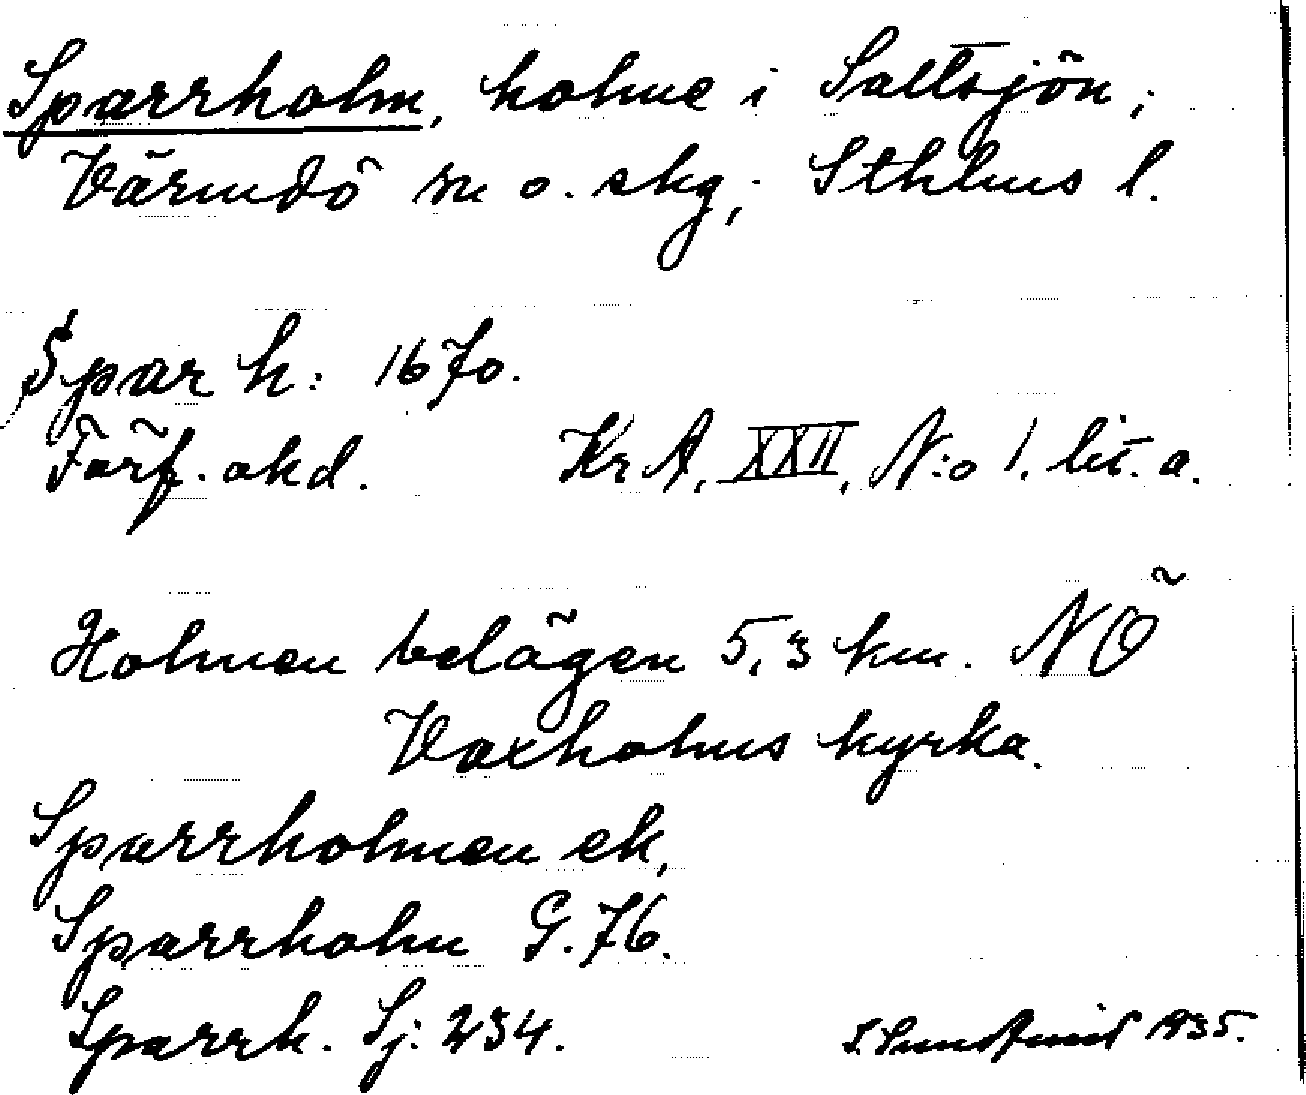 Sparrholm, holme i Saltsjön,
Värmdö sn o. skg, Sthlms l.
Spar h: 1670.
Förf. okd. Kr A, XXII, N:o 1. lit. a.
Holmen belägen 5,3 km. NÖ
Vaxholms kyrka.
Sparrholmen ek,
Sparrholm G. 76.
Sparrh. Sj: 234.
1935.